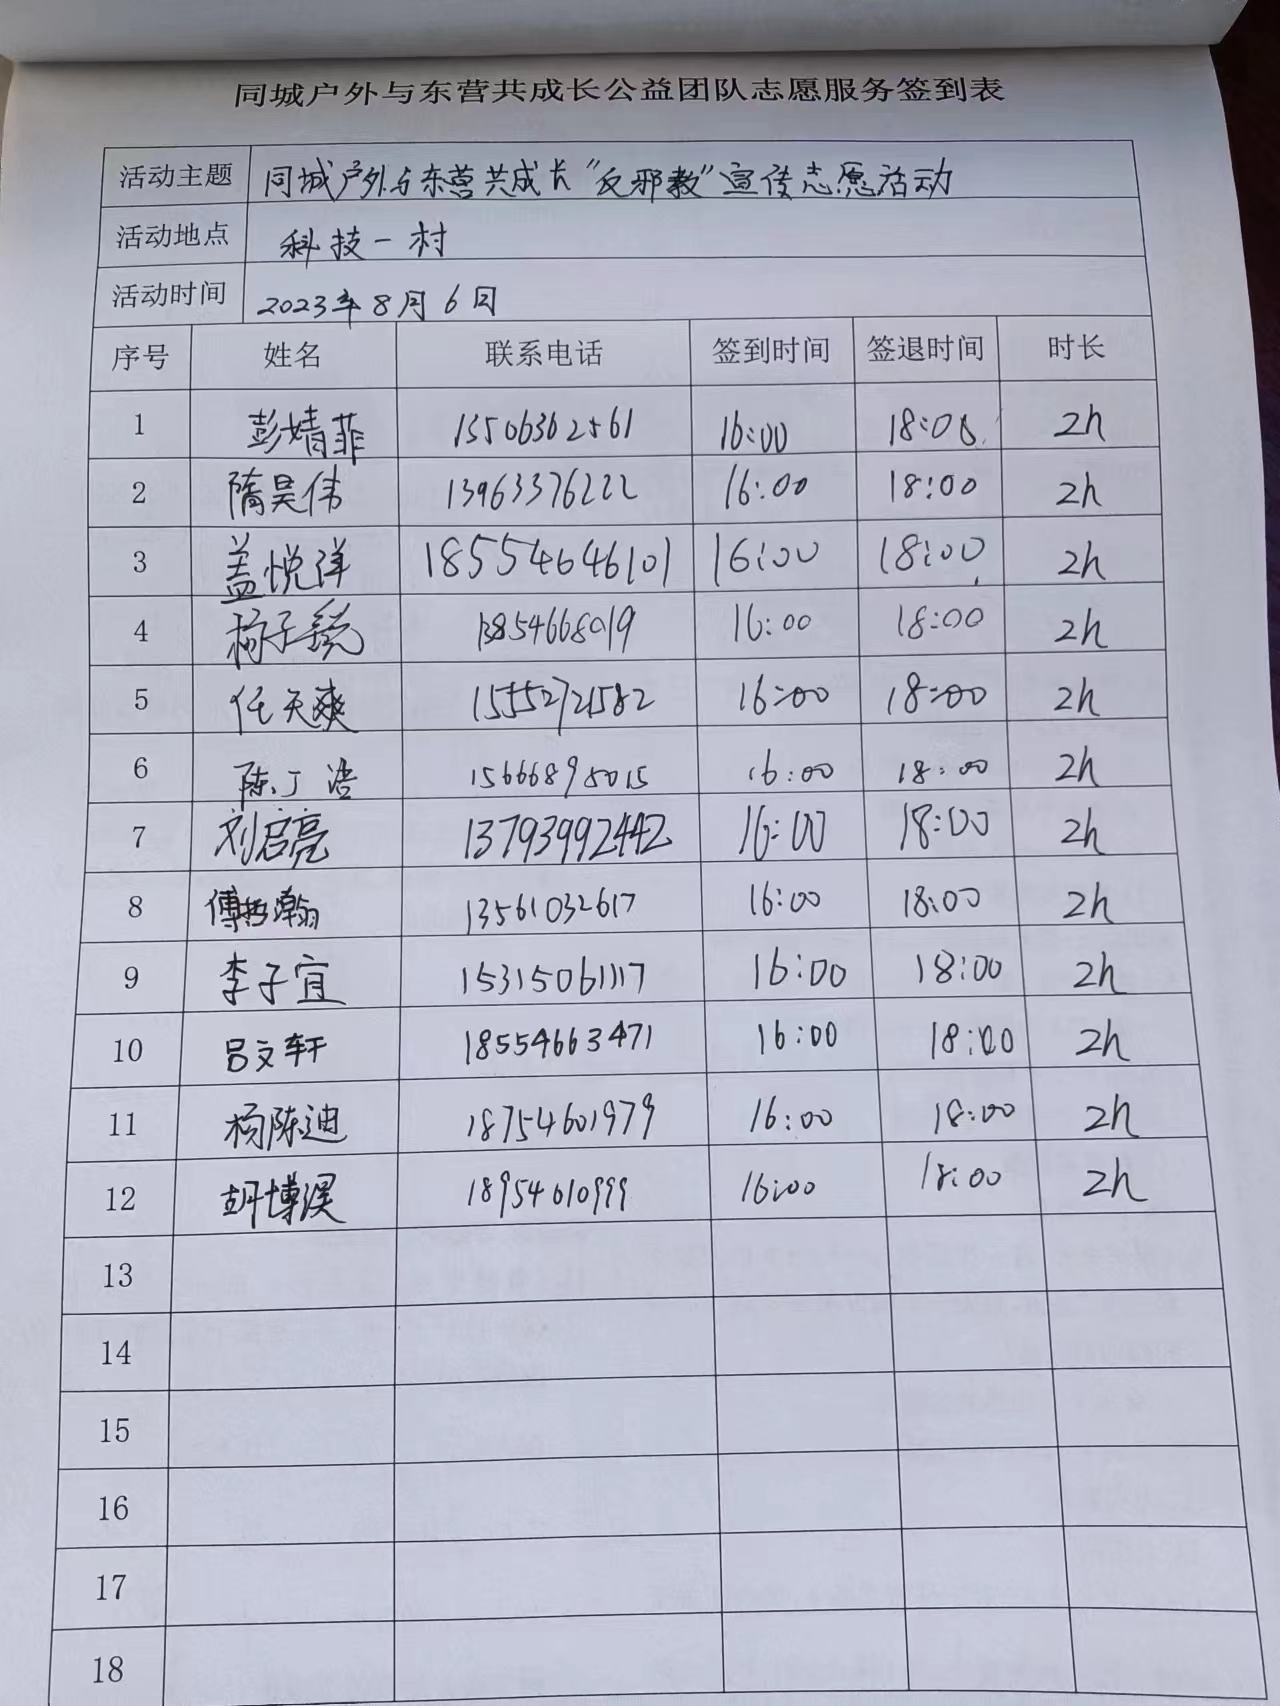 同城户外与东营共成长公益团队志愿服务签到表
活动主题 同城户外与东营共成长“反邪教”宣传志愿活动
活动地点 科技一村
活动时间 2023年8月6日
序号 姓名 联系电话 签到时间 签退时间 时长
1 彭婧菲 13506362561 16:00 18:00 2h
2 隋昊伟 13963376222 16:00 18:00 2h
3 盖悦洋 18554646101 16:00 18:00 2h
4 杨子锐 13854668019 16:00 18:00 2h
5 任天爽 15552721582 16:00 18:00 2h
6 陈丁浩 15666898015 16:00 18:00 2h
7 刘启亮 13793992442 16:00 18:00 2h
8 傅哲瀚 13561032617 16:00 18:00 2h
9 李子宜 15315061117 16:00 18:00 2h
10 吕文轩 18554663471 16:00 18:00 2h
11 杨陈迪 18754601979 16:00 18:00 2h
12 胡博淏 18954610999 16:00 18:00 2h
13
14
15
16
17
18